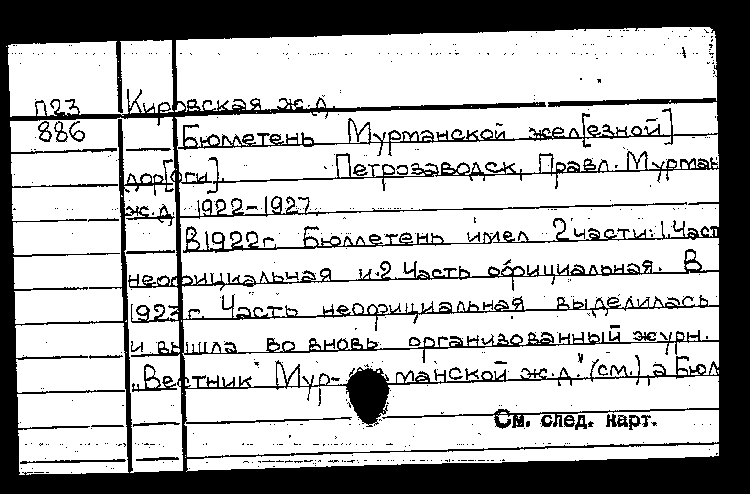 П23 Кировская ж.д.
886 Бюллетень Мурманской жел[езной]
дор[оги]. Петрозаводск, Правл. Мурман
ж.д. 1922-1927.
В 1922 г. Бюллетень имел 2 части: 1. Част
неофициальная и 2. Часть официальная. В
1923 г. Часть неофициальная выделилась
и вышла во вновь организованный журн.
„Вестник Мурманской ж.д." (см.), а Бюл
См. след. карт.